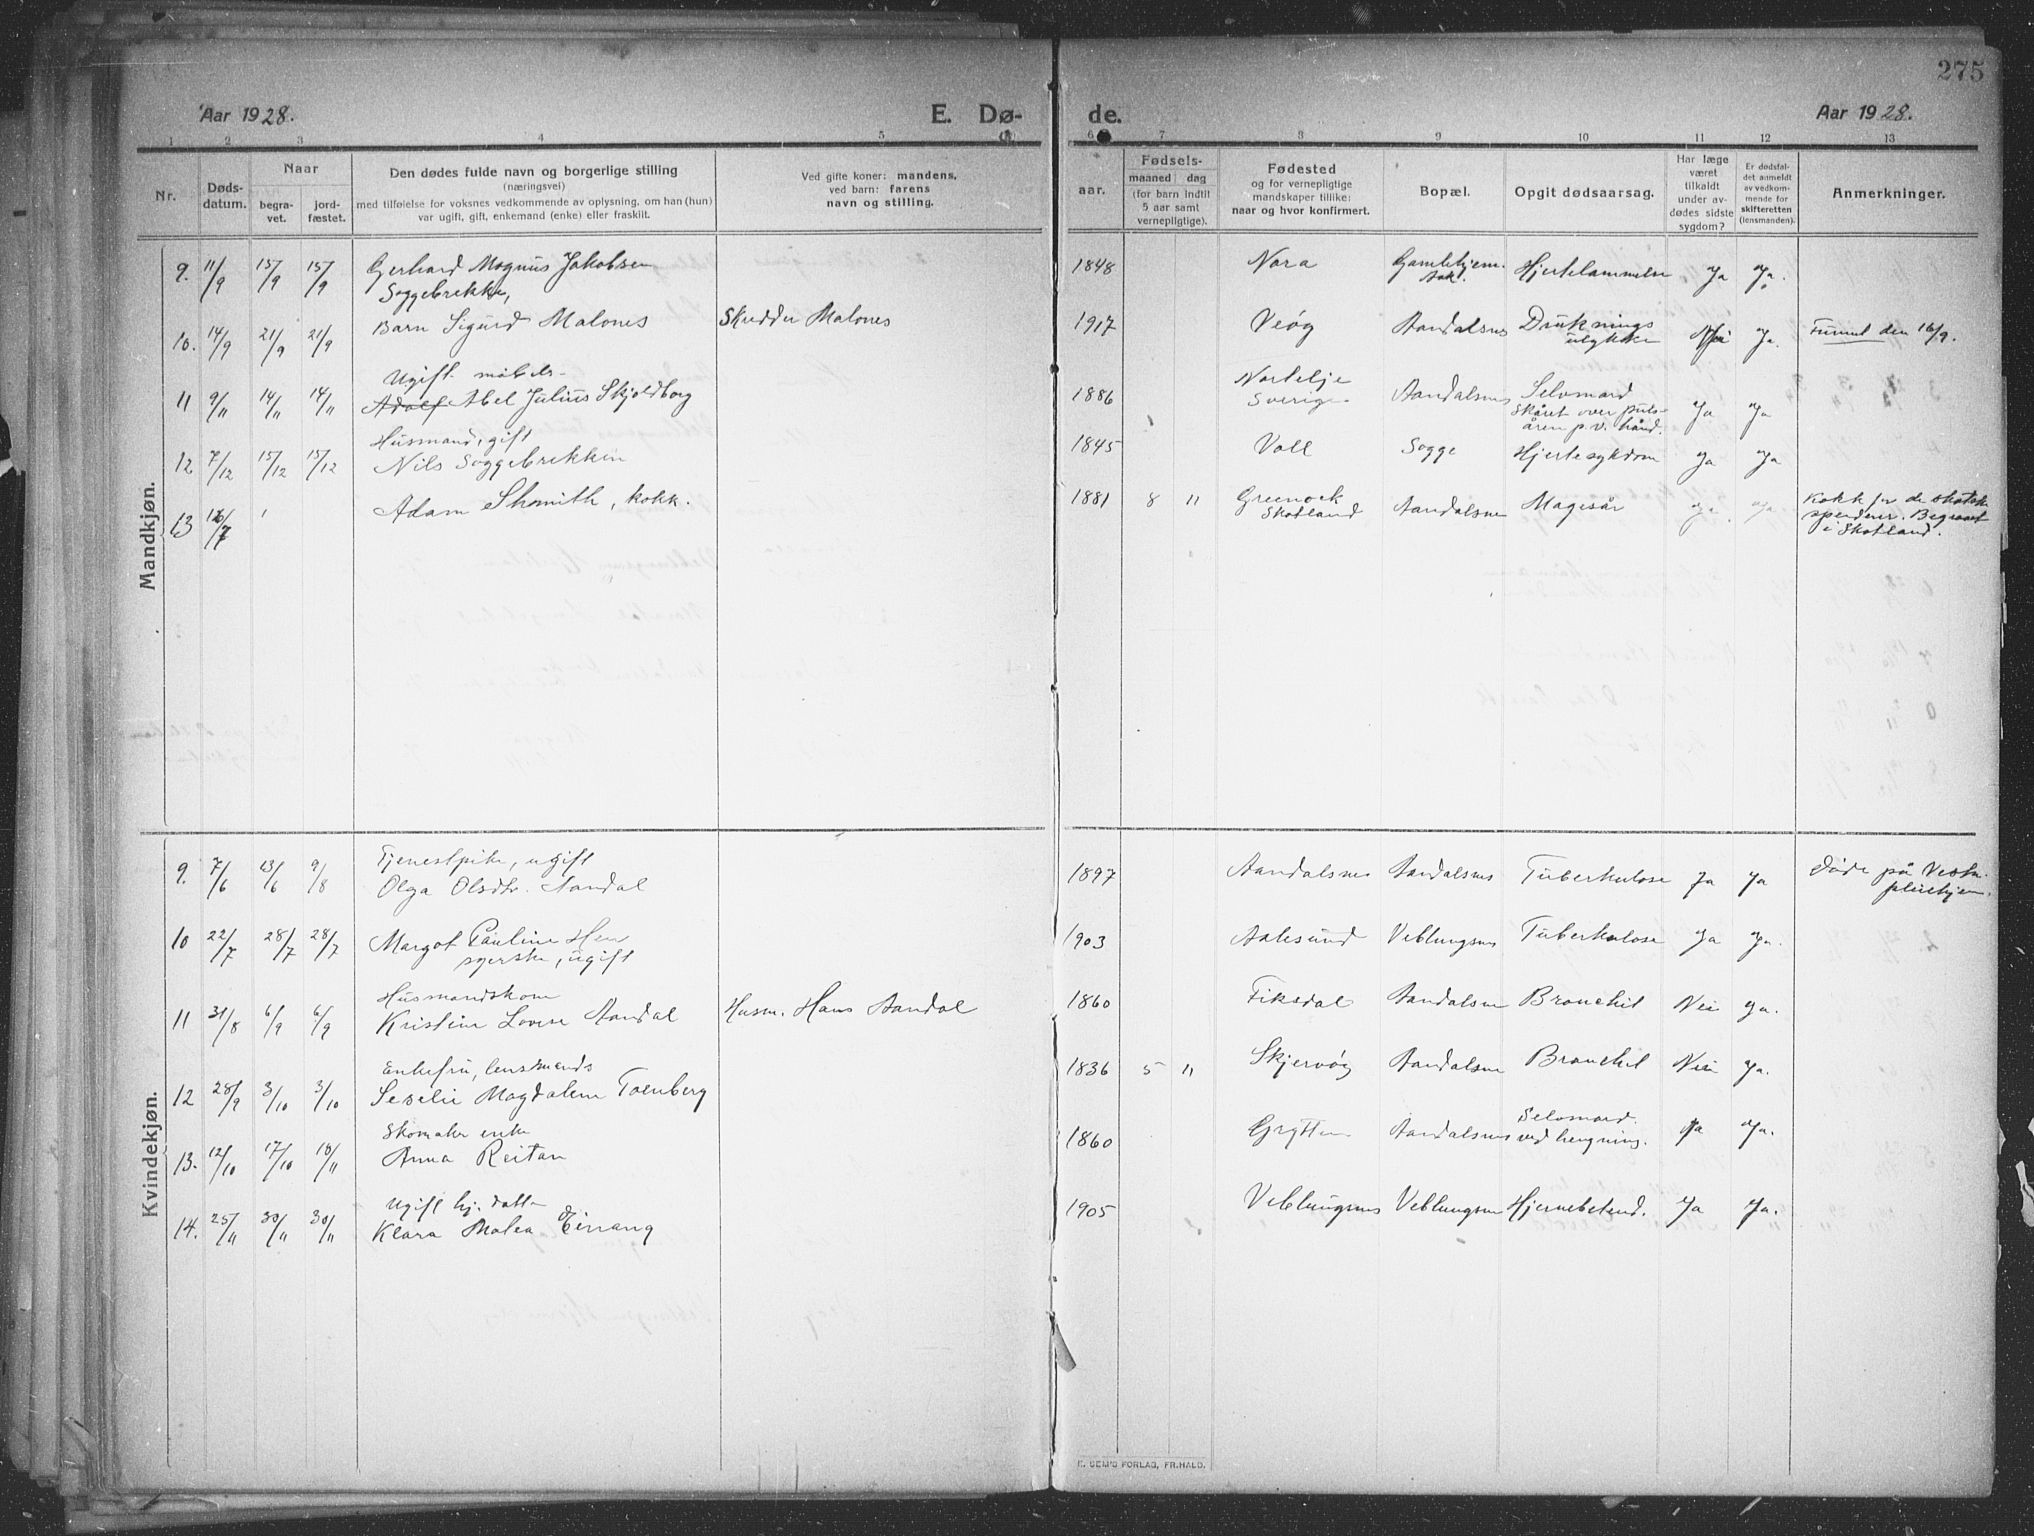 275
Aar 1928. E. Dø- de. Aar 1928.
1 2 3 4 5 6 7 8 9 10 11 12 13
Nr.
Døds-
datum.
Naar
begra-
vet.
jord-
fæstet.
Den dødes fulde navn og borgerlige stilling
(næringsvei)
med tilføielse for voksnes vedkommende av oplysning, om han (hun)
var ugift, gift, enkemand (enke) eller fraskilt.
Ved gifte koner: mandens,
ved barn: farens
navn og stilling.
aar.
Fødsels-
maaned dag
(for barn indtil
5 aar samt
vernepligtige).
Fødested
og for vernepligtige
mandskaper tillike:
naar og hvor konfirmert.
Bopæl.
Opgit dødsaarsag.
Har læge
været
tilkaldt
under av-
dødes sidste
sygdom?
Er dødsfal-
det anmeldt
av vedkom-
mende for
skifteretten
(lensmanden).
Anmerkninger.
Mandkjøn.
9. 11/9 15/9 15/9 Gerhard Magnus Jakobsen 1848 Nora Hjertelammelse Ja Ja.
Soggebrekke,
10. 14/9 21/9 21/9 Barn Sigurd Malones Skredder Malones 1917 Veøy Aandalsnes Druknings Nei Ja. Funnet den 16/9.
ulykke
Ugift. møbels-
11 9/11 14/11 14/11 Adolf Abel Julius Skjoldborg 1886 Nortelje Aandalsnes Selvmord Ja Ja
Sverige
Skåret over puls-
åren p.v. hånd.
Husmand, gift
12 7/12 15/12 15/12 Nils Soggebrekken 1845 Voll Sogge Hjertesykdom Ja Ja
13 Adam Shmith, kokk. 1881 8 11 Greenock Aandalsnes Magesår Ja Ja. Kokk for de skotske
Skotland
Begravet
i Skotland.
Kvindekjøn.
Tjenestpike, ugift
9. 7/6 13/6 9/8 Olga Olsdtr. Aandal 1897 Aandalsnes Aandalsnes Tuberkulose Ja Ja Døde på Vestn.
pleiehjem.
10 22/7 28/7 28/7 Margot Pauline Hen 1903 Aalesund Veblungsnes Tuberkulose Ja Ja.
syerske, ugift
Husmandskone
11 31/8 6/9 6/9 Kristine Lovise Aandal Husm. Hans Aandal 1860 Fiksdal Aandalsnes Bronchit Nei Ja.
Enkefru, lensmands
12 28/9 3/10 3/10 Seselie Magdalene Toenberg 1836 5 11 Skjervøy Aandalsnes Bronchit Nei Ja.
Skomaker enke
13. 12/10 17/10 18/11 Anna Reitan 1860 Grytten Aandalsnes Selvmord Ja Ja.
ved hengning.
Ugift hj. datter
14. 25/11 30/11 30/11 Klara Malea Eirang 1905 Veblungsnes Veblungsnes Hjernebetend. Ja Ja.
E. SEM'S FORLAG, FR.HALD.